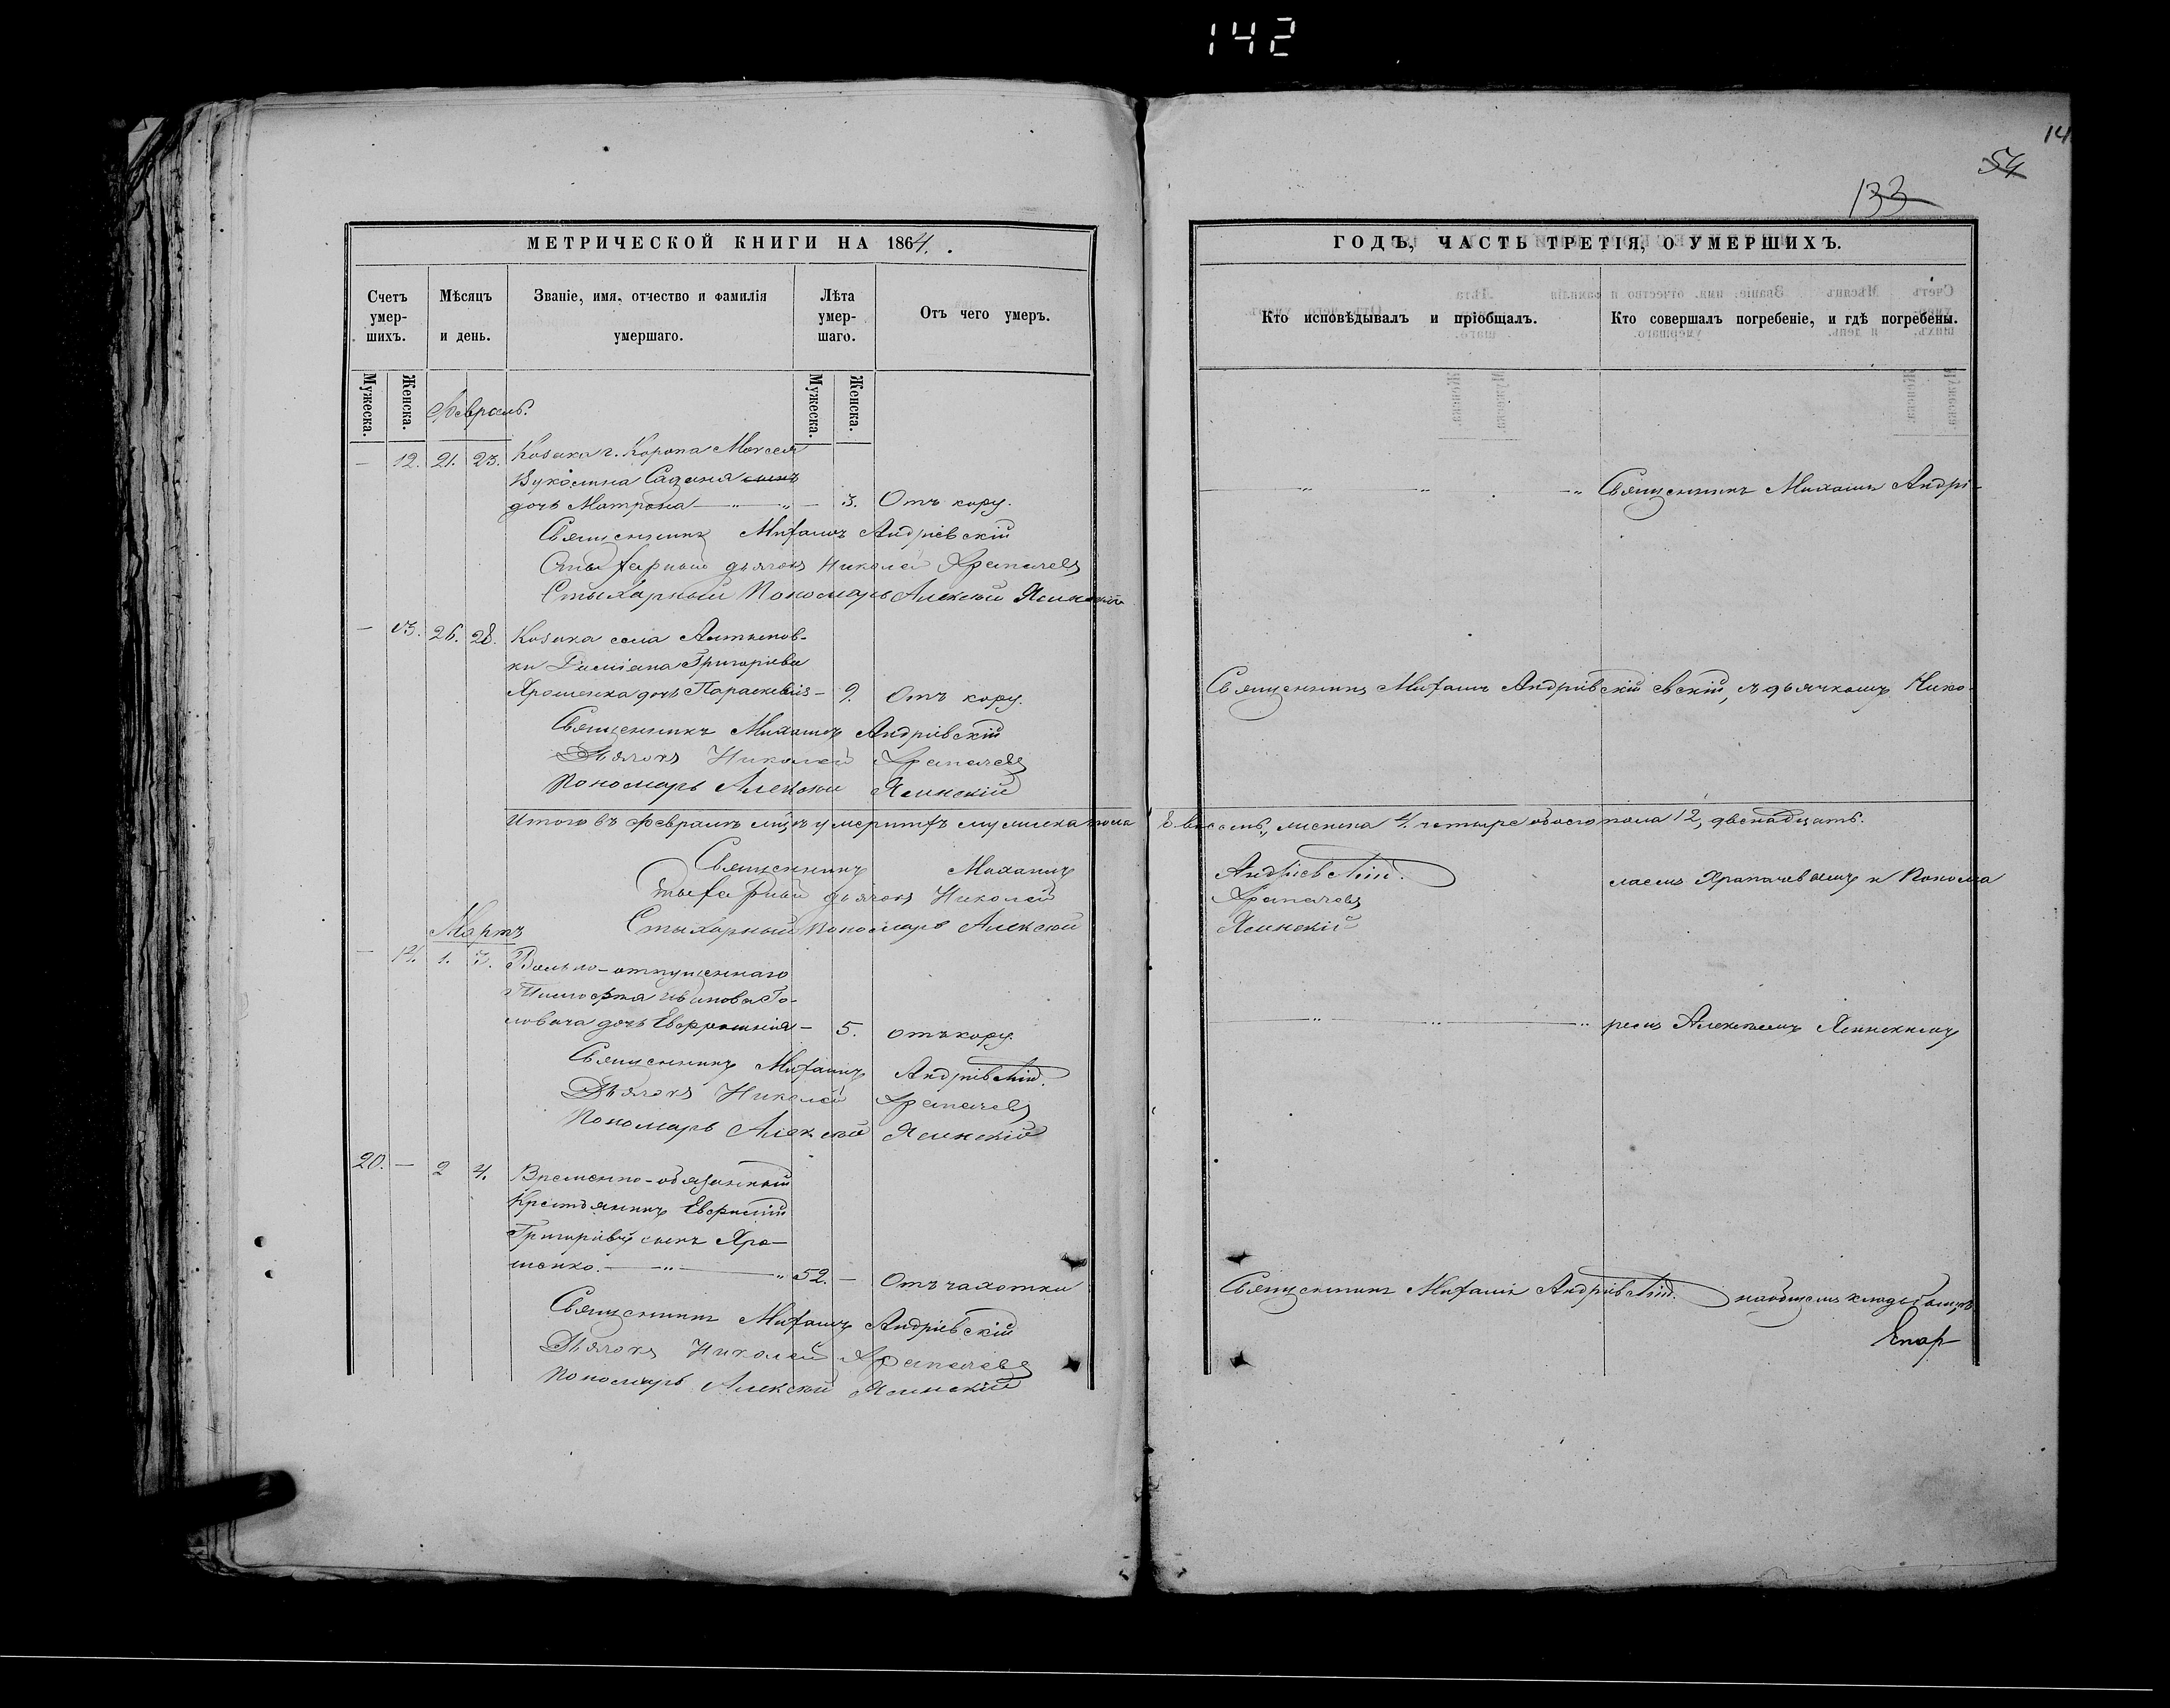 142
14
54
133
МЕТРИЧЕСКОЙ КНИГИ НА 1864.
Счетъ умер-шихъ.
Мѣсяцъ и день.
Званіе, имя, отчество и фамилія умершаго.
Лѣта умер-шаго.
Отъ чего умеръ.
Мужеска.
Женска.
Мужеска.
Женска.
Февраль.
— 12. 21. 23. Козака г. Коропа
дочь Матрона — — 3. Отъ кору.
Священникъ Михаилъ Андріевскій
Стыхарный дьячокъ Николай Храпачевъ
Стыхарный Пономарь Алексѣй Ясинскій
— 13. 26. 28. Козака села Алтынов-
ки Даміана Григоріева
дочь Параскевія — 9. Отъ кору.
Священникъ Михаилъ Андріевскій
Дьячокъ Николай Храпачевъ
Пономарь Алексѣй Ясинскій
Итого въ Февралѣ м-цѣ умершихъ мужеска пола
Священникъ Михаилъ
Стыхарный дьячокъ Николай
Стыхарный Пономарь Алексѣй
Мартъ
— 14. 1. 3. Вольно-отпущеннаго
Тимофея Иванова Го-
ловача дочь Евфросинія — 5. отъ кору.
Священникъ Михаилъ Андріевскій.
Дьячокъ Николай Храпачевъ
Пономарь Алексѣй Ясинскій
20. — 2 4. Временно-обязанный
Крестьянинъ Евфимій
Григоріевъ сынъ Хро-
менко. — 52. — Отъ чахотки
Священникъ Михаилъ Андріевскій
Дьячокъ Николай Храпачевъ
Пономарь Алексѣй Ясинскій
ГОДЪ, ЧАСТЬ ТРЕТІЯ, О УМЕРШИХЪ.
Кто исповѣдывалъ и пріобщалъ.
Кто совершалъ погребеніе, и гдѣ погребены.
Священникъ Михаилъ Андрі-
Священникъ Михаилъ Андріевскій
евскій, съ дьячкомъ Нико-
8 восемь, женска 4. четыре обоего пола 12, двенадцать.
Андріевскій.
Храпачевъ
Ясинскій
лаемъ Храпачевымъ и Понома
ремъ Алексѣемъ Ясинскимъ
Священникъ Михаилъ Андріевскій.
на общемъ кладбищѣ